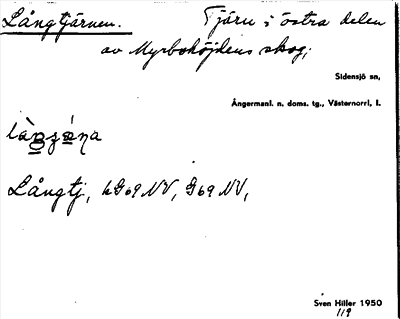 Långtjärnen. Tjärn i östra delen
av Myrbohöjdens skog;
Sidensjö sn,
Ångermanl. n. doms. tg., Västernorrl. l.
Långtj, hG69NV, G69NV,
Sven Hiller 1950
119